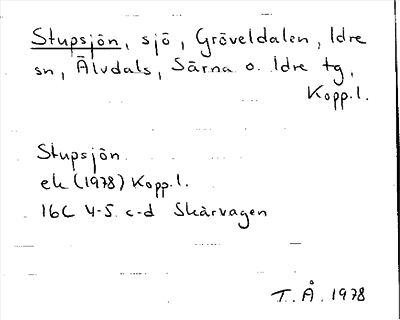 Stupsjön, sjö, Gröveldalen, Idre
sn, Älvdals, Särna o. Idre tg,
Kopp.l.
Stupsjön
ek (1978) Kopp.l.
16C 4-5 c-d Skärvagen
T.Å. 1978